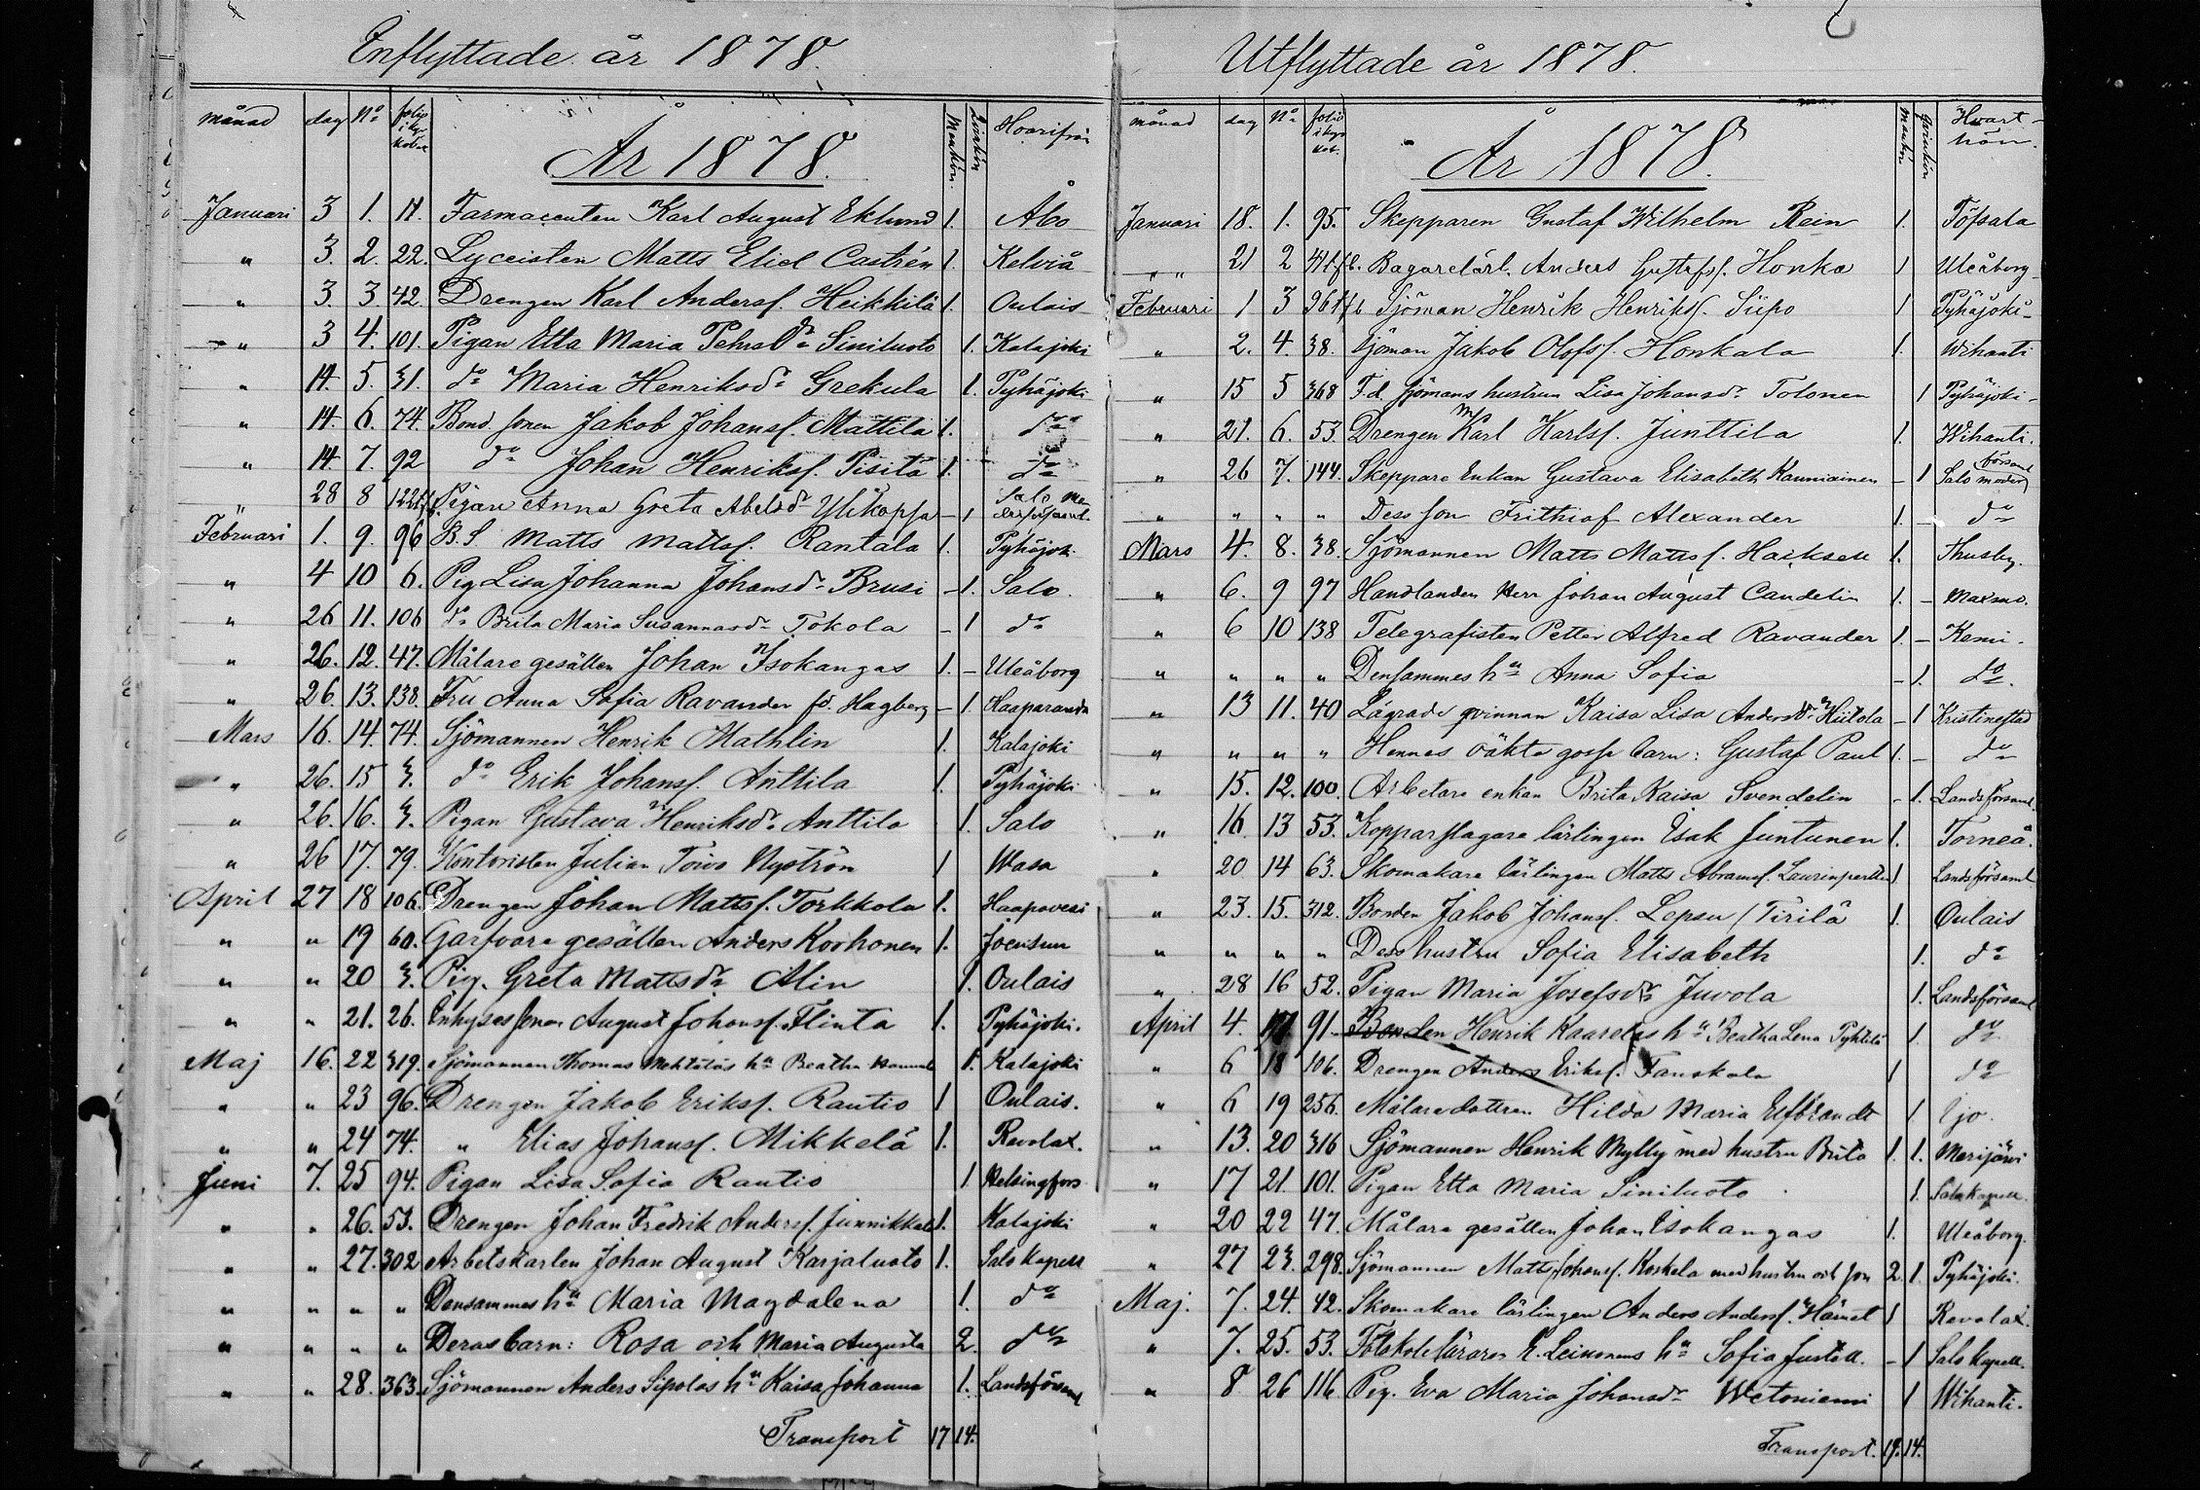 Inflyttade år 1878.
månad dag No folio i kyrkobok Mankön. Qvinkön Hvarifrån
År 1878.
Januari 3 1. 11. Farmaceuten Karl August Eklund 1. Åbo
" 3. 2. 22. Lyceisten Matts Eliel Castrén 1. Kelviå
" 3. 3. 42. Drengen Karl Andersf. Heikkilä 1. Oulais
" 3 4. 101. Pigan Etta Maria Pehrsdr Siniluoto 1. Kalajoki
" 14. 5. 31. do Maria Henriksdr Grekula 1. Pyhäjoki
" 14. 6. 74. Bond. sonen Jakob Johansf. Mattila 1. do
" 14 7. 92 do Johan Henriksf. Pisitä 1. do
" 28 8 Pigan Anna Greta Abelsdr Ylikoppa – 1 Salo
Februari 1. 9. 96 B.S Matts Mattsf. Rantala 1. Pyhäjok.
" 4 10 6. Pig Lisa Johanna Johansdr Brusi – 1. Salo.
" 26 11. 106 do Brita Maria Susannasdr Tokola – 1 do
" 26. 12. 47. Målare gesällen Johan Isokangas 1. – Uleåborg
" 26. 13. 138. Fru Anna Sofia Ravander fd. Hagberg – 1. Haaparanda
Mars 16. 14. 74. Sjömannen Henrik Mathlin 1. Kalajoki
" 26. 15 3. do Erik Johansf. Anttila 1. Pyhäjoki
" 26. 16. 3. Pigan Gustava Henriksdr Anttila 1. Salo
" 26 17. 79. Kontoristen Julian Toivo Nyström 1 Wasa
April 27 18 106. Drengen Johan Mattsf. Torkkola 1. Haapavesi
" " 19 60. Garfvare gesällen Anders Korhonen 1. Joensuu
" " 20 3. Pig. Greta Mattsdr Alin 1. Oulais
" " 21. 26. Inhysessonen August Johansf. Flinta 1. Pyhäjoki.
Maj 16. 22 319. Sjömannen Thomas Mehtäläs hu Beatha 1. Kalajoki
" " 23 96. Drengen Jakob Eriksf. Rautio 1 Oulais.
" " 24 74. " Elias Johansf. Mikkelä 1. Revolax.
Juni 7. 25 94. Pigan Lisa Sofia Rautio 1 Helsingfors
" " 26. 53. Drengen Johan Fredrik Andersf. Junnikkala 1. Kalajoki
" " 27. 302 Arbetskarlen Johan August Karjaluoto 1. Salo Kapell
" " " " Densammes hu Maria Magdalena 1. do
" " " " Deras barn: Rosa och Maria Augusta 2. do
" " 28. 363. Sjömannen Anders Sipolas hu Kaisa Johanna 1. Landsförsaml
Transport 17 14.
Utflyttade år 1878.
månad dag No folio i kyrkobok. Mankön. Qvinkön Hvart-hän.
År 1878.
Januari 18. 1. 95. Skepparen Gustaf Wilhelm Rein 1. Töfsala
" " 21 2 Bagarelärl. Anders Gustafsf. Honka 1 Uleåborg
Februari 1 3 Sjöman Henrik Henriksf. Siipo 1 Pyhäjoki
" 2. 4. 38. Sjöman Jakob Olofsf. Honkala 1. Wihanti
" 15 5 368 F.d. sjömans hustrun Lisa Johansdr Tolonen 1 Pyhäjoki
" 21. 6. 53. Drengen Karl Karlsf. Junttila 1. Wihanti.
" 26 7. 144. Skeppare Enkan Gustava Elisabeth Kauniainen – 1 Salo moder församl
" " " " Dess son Frithiof Alexander 1. – do
Mars 4. 8. 38. Sjömannen Matts Mattsf. 1. Thusby.
" 6. 9 97 Handlanden Herr Johan August Candelin 1. – Maxmo.
" 6 10 138 Telegrafisten Petter Alfred Ravander 1. – Kemi.
" " " " Densammes hu Anna Sofia – 1. do.
" 13 11. 40 Lägrade qvinnan Kaisa Lisa Andersdr Hiitola – 1 Kristinestad
" " " " Hennes oäkta gosse barn: Gustaf Paul 1. – do
" 15. 12. 100. Arbetare enkan Brita Kaisa Svendelin – 1. Landsförsaml.
" 16 13 53. Kopparslagare lärlingen Isak Juntunen 1. Torneå.
" 20. 14 63. Skomakare lärlingen Matts Abramsf. Laurinperttu 1 Landsförsaml
" 23. 15. 312. Bonden Jakob Johansf. Lepsu / Tirilä 1. Oulais
" " " " Dess hustru Sofia Elisabeth 1. do
" 28 16 52. Pigan Maria Josefsdr Juvola 1. Landsförsaml
April 4. 17 91. Bonden Henrik Kaareläs hu Beatha Lena Pyhtilä 1. do
" 6 18 106. Drengen Anders Eriksf. Fanskala 1 do
" 6 19 256. Målaredottren Hilda Maria Elfbrandt 1 Ijo.
" 13. 20 316 Sjömannen Henrik Mylly med hustru Brita 1. 1. Merijärvi
" 17 21. 101. Pigan Etta Maria Siniluoto. 1. Salo Kapell.
" 20 22 47. Målare gesällen Johan Isokangas 1. Uleåborg.
" 27 23. 298. Sjömannen Matts Johansf. Koskela med hustru och son 2. 1. Pyhäjoki.
Maj. 7. 24. 42. Skomakare lärlingen Anders Andersf. 1 Revolax.
" 7. 25. 53. Folkskolelärares E. Leinonens hu Sofia – 1 Salo Kapell.
" 8 26 116. Pig. Eva Maria Johansdr Wetoniemi 1 Wihanti.
Transport. 19. 14.